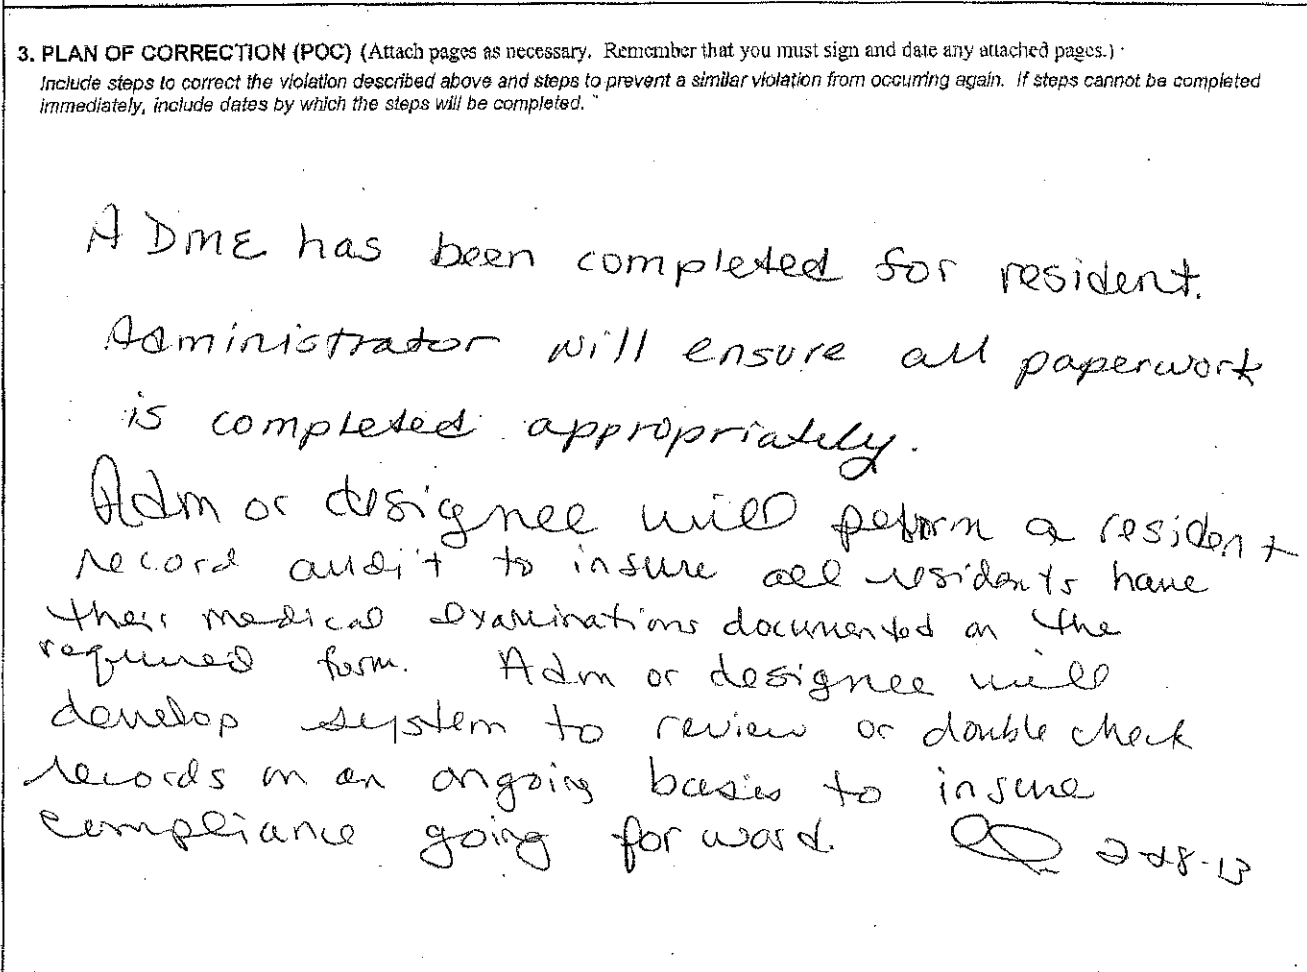 3. PLAN OF CORRECTION (POC) (Attach pages as necessary. Remember that you must sign and date any attached pages.)
Include steps to correct the violation described above and steps to prevent a similar violation from occurring again. If steps cannot be completed
immediately, include dates by which the steps will be completed.
A DME has been completed for resident.
Administrator will ensure all paperwork
is completed appropriately.
Adm or designee will peform a resident
record audit to insure all residents have
their medical examinations documented on the
required form. Adm or designee will
develop system to review or double check
records on an ongoing basis to insure
compliance going forward. 2-28-13